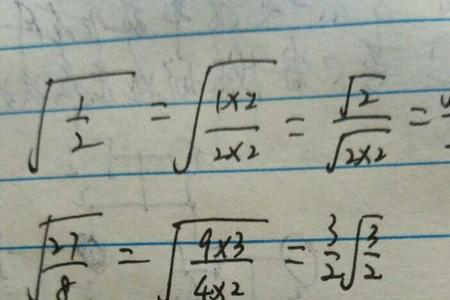 √(1/2) = √((1×2)/(2×2)) = √2/√(2×2) =
√(27/8) = √((9×3)/(4×2)) = 3/2√(3/2)